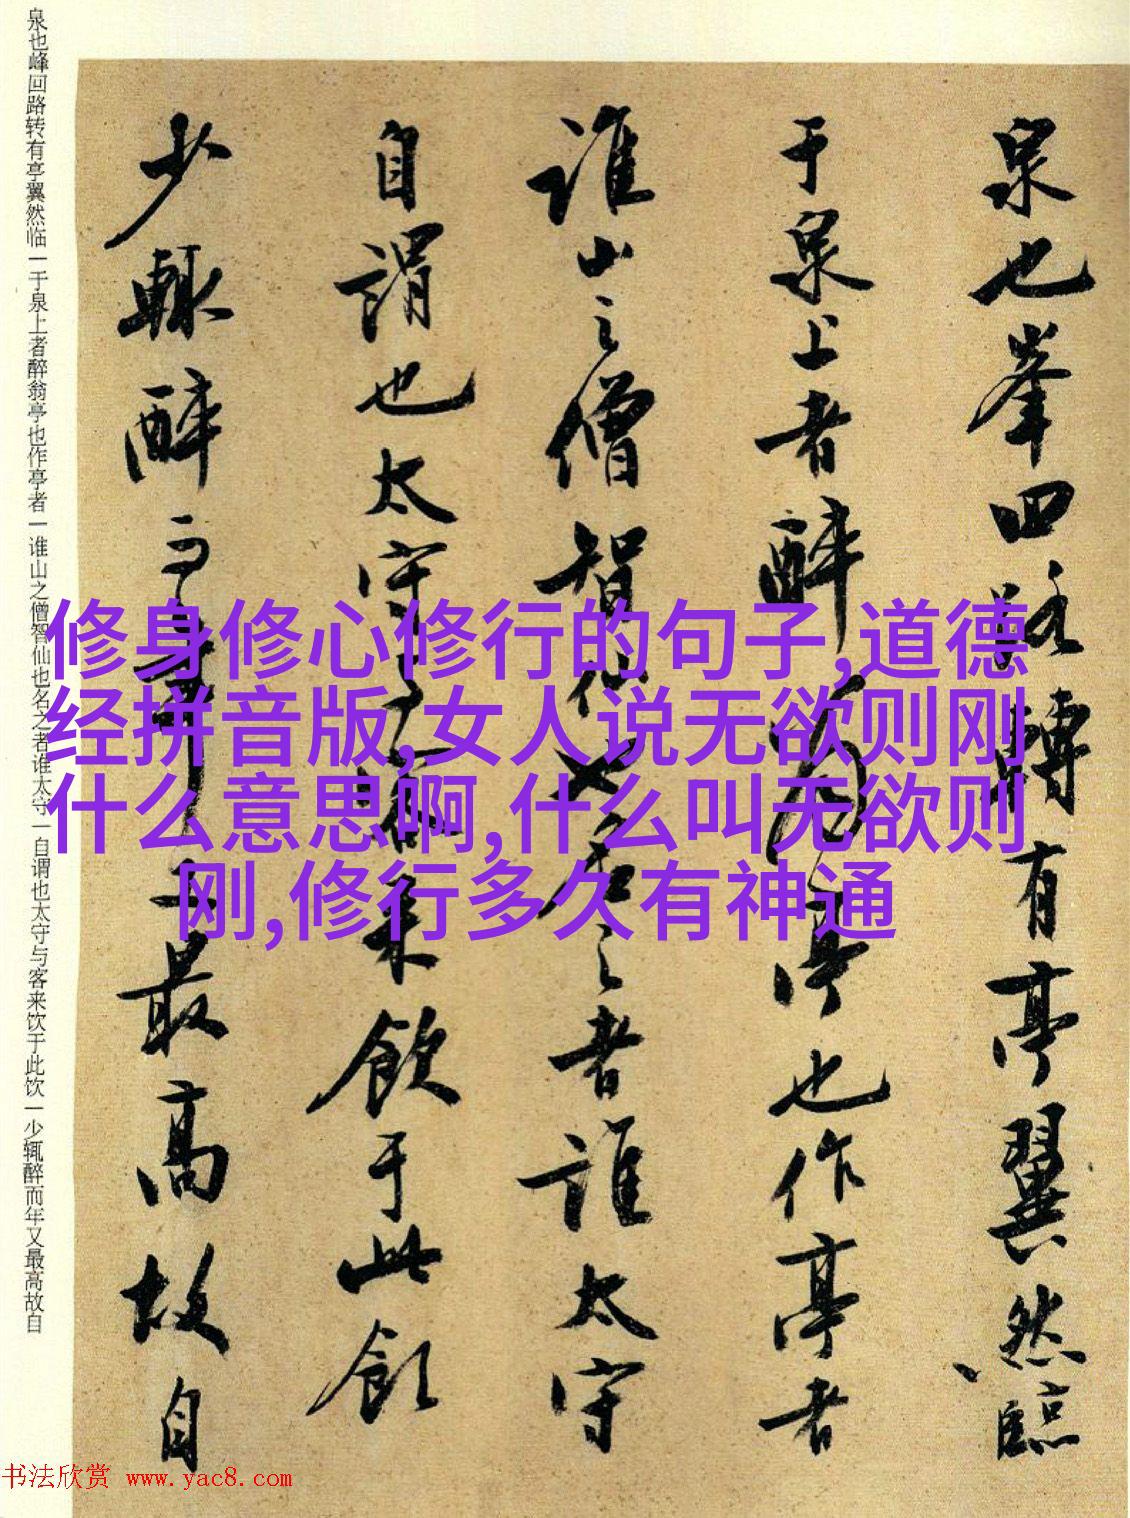 泉也峰回路转有亭翼然临一于泉上者醉翁亭也作亭者一谁山之僧智仙也名之者谁太守一自谓也太守与客来饮于此饮一少辄醉而年又最高故自
泉也峯回路轉有亭翼然臨
于泉上者醉翁亭也作亭者
誰山之僧智仙也名之者誰太守
自謂也太守与客来飲于此飲
少輒醉而年又最高故自
修身修心修行的句子,道德
经拼音版,女人说无欲则刚
什么意思啊,什么叫无欲则
刚,修行多久有神通
书法欣赏 www.yac8.com